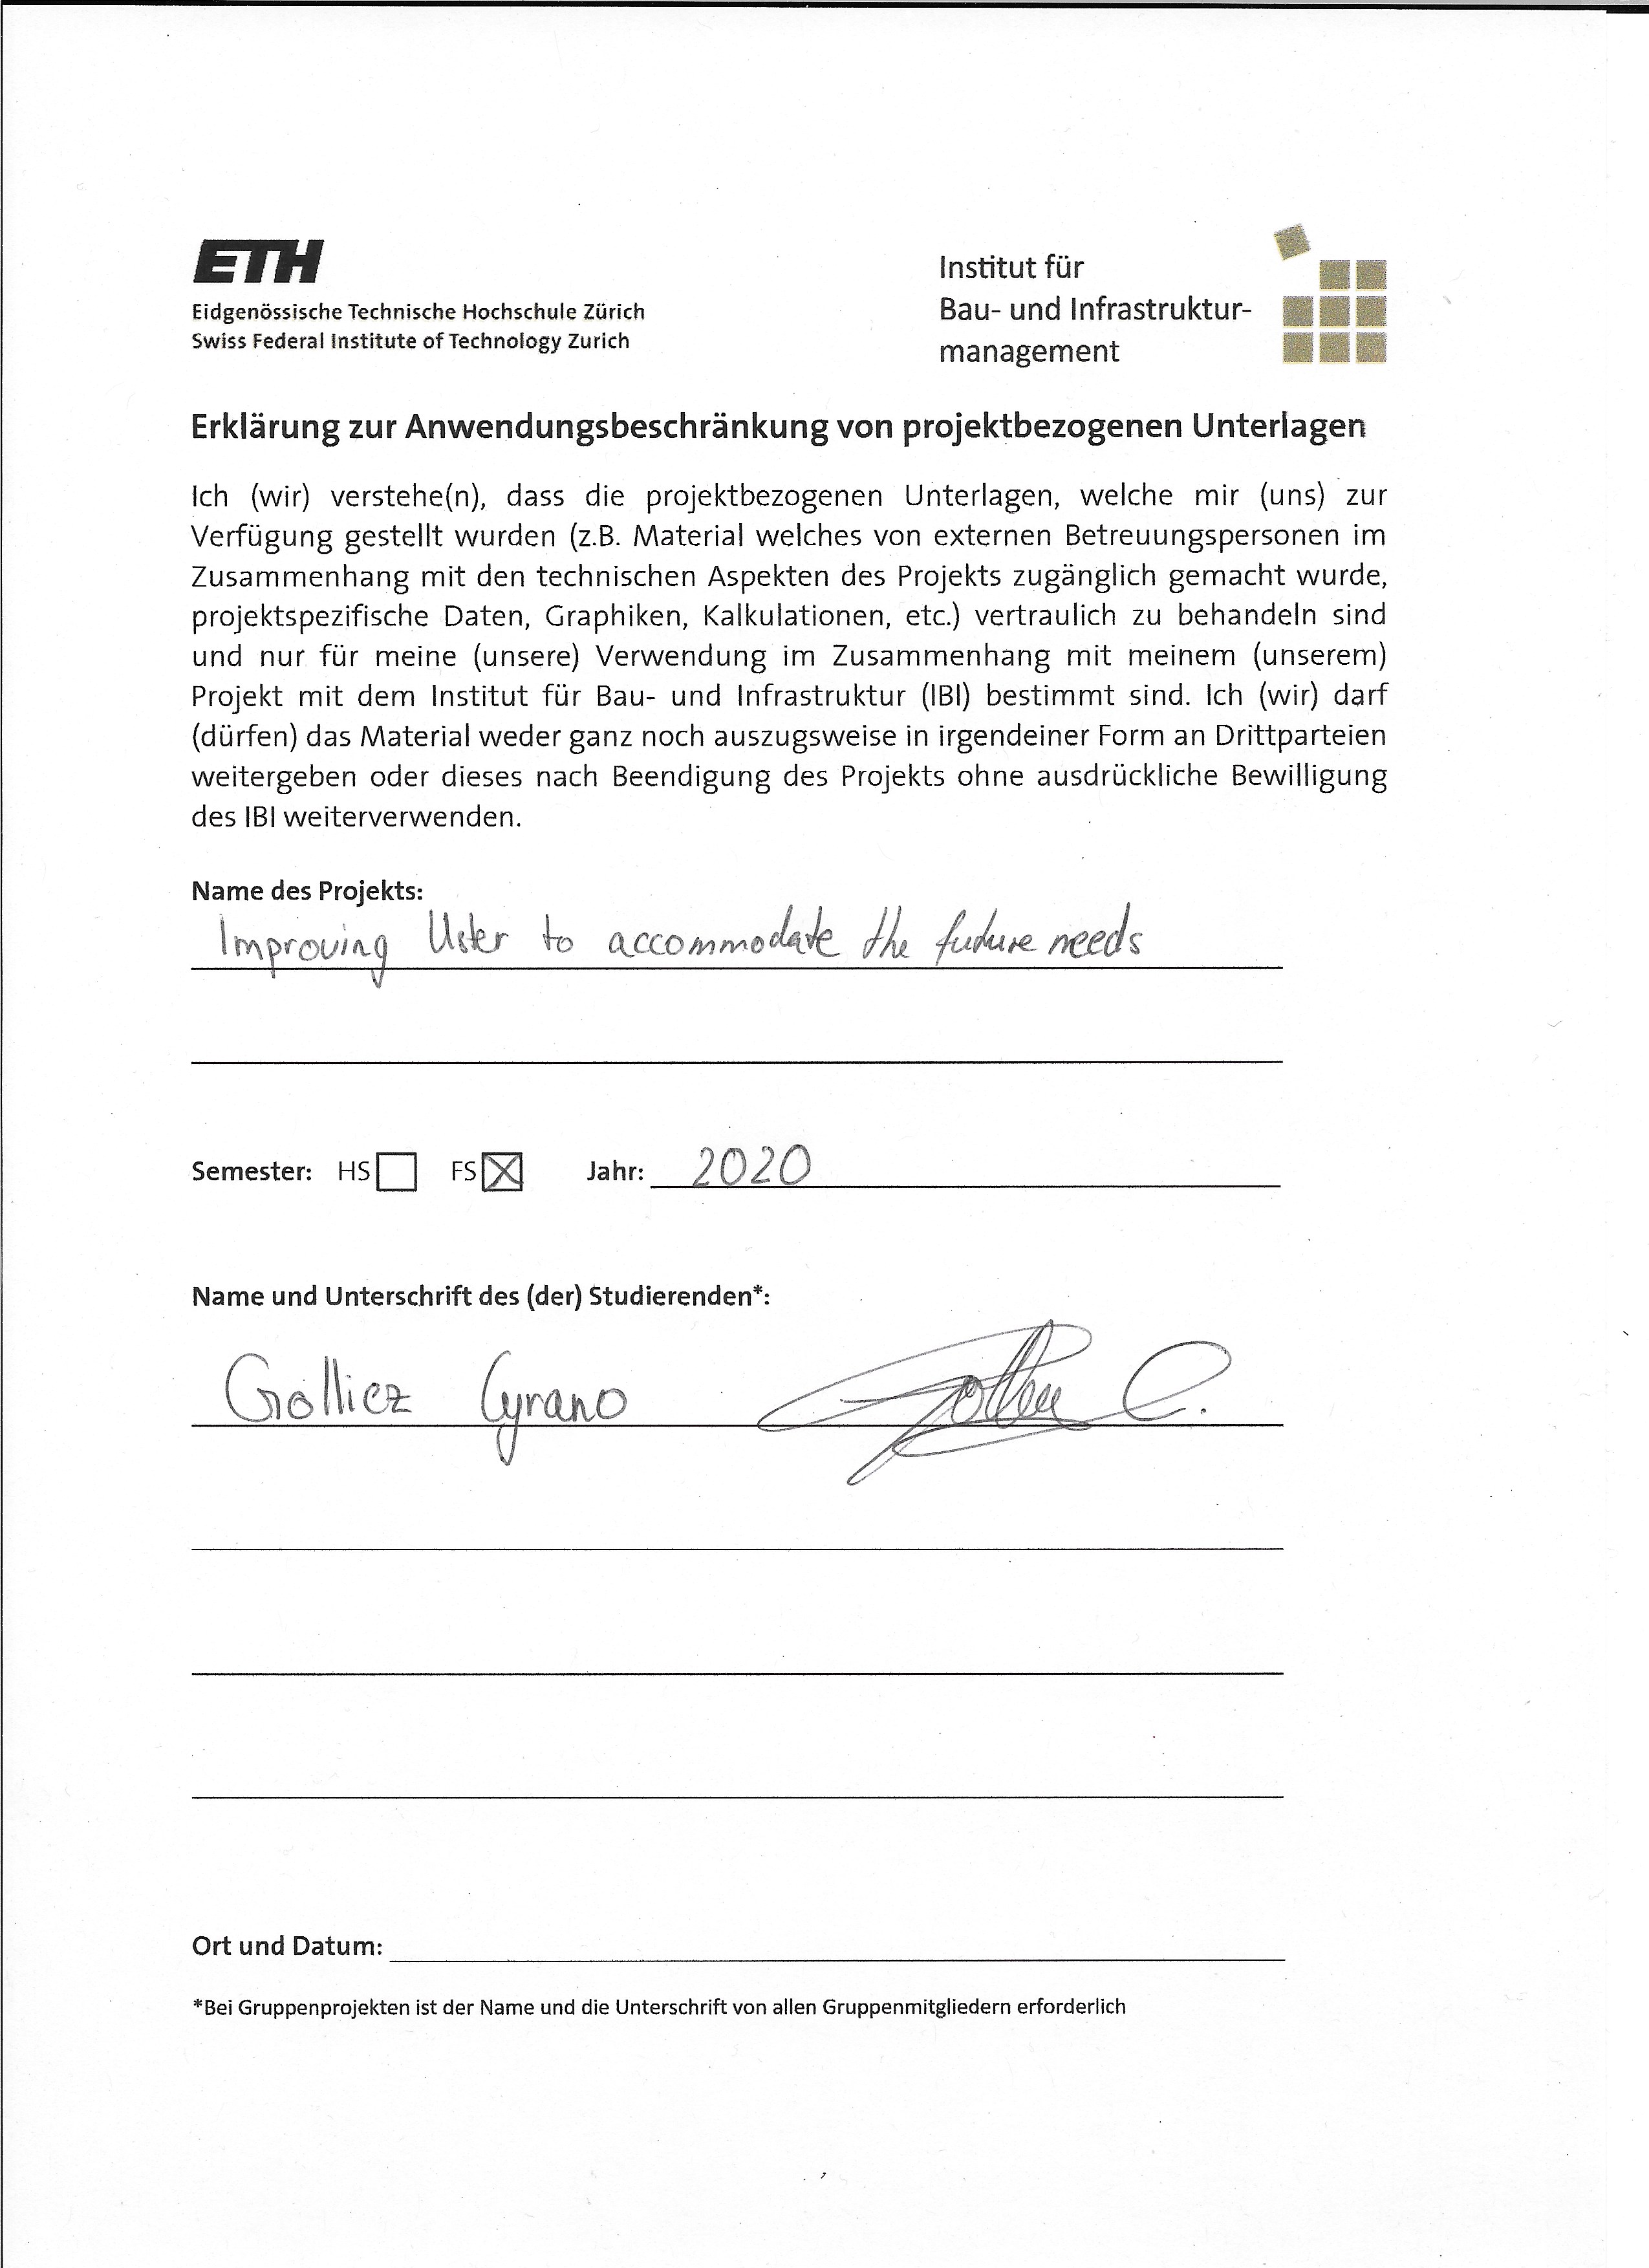 ETH
Eidgenössische Technische Hochschule Zürich
Swiss Federal Institute of Technology Zurich
Institut für
Bau- und Infrastruktur-
management
Erklärung zur Anwendungsbeschränkung von projektbezogenen Unterlagen
Ich (wir) verstehe(n), dass die projektbezogenen Unterlagen, welche mir (uns) zur
Verfügung gestellt wurden (z.B. Material welches von externen Betreuungspersonen im
Zusammenhang mit den technischen Aspekten des Projekts zugänglich gemacht wurde,
projektspezifische Daten, Graphiken, Kalkulationen, etc.) vertraulich zu behandeln sind
und nur für meine (unsere) Verwendung im Zusammenhang mit meinem (unserem)
Projekt mit dem Institut für Bau- und Infrastruktur (IBI) bestimmt sind. Ich (wir) darf
(dürfen) das Material weder ganz noch auszugsweise in irgendeiner Form an Drittparteien
weitergeben oder dieses nach Beendigung des Projekts ohne ausdrückliche Bewilligung
des IBI weiterverwenden.
Name des Projekts:
Improving Uster to accommodate the future needs
Semester: HS FS Jahr: 2020
Name und Unterschrift des (der) Studierenden*:
Golliez Cyrano
Ort und Datum:
*Bei Gruppenprojekten ist der Name und die Unterschrift von allen Gruppenmitgliedern erforderlich